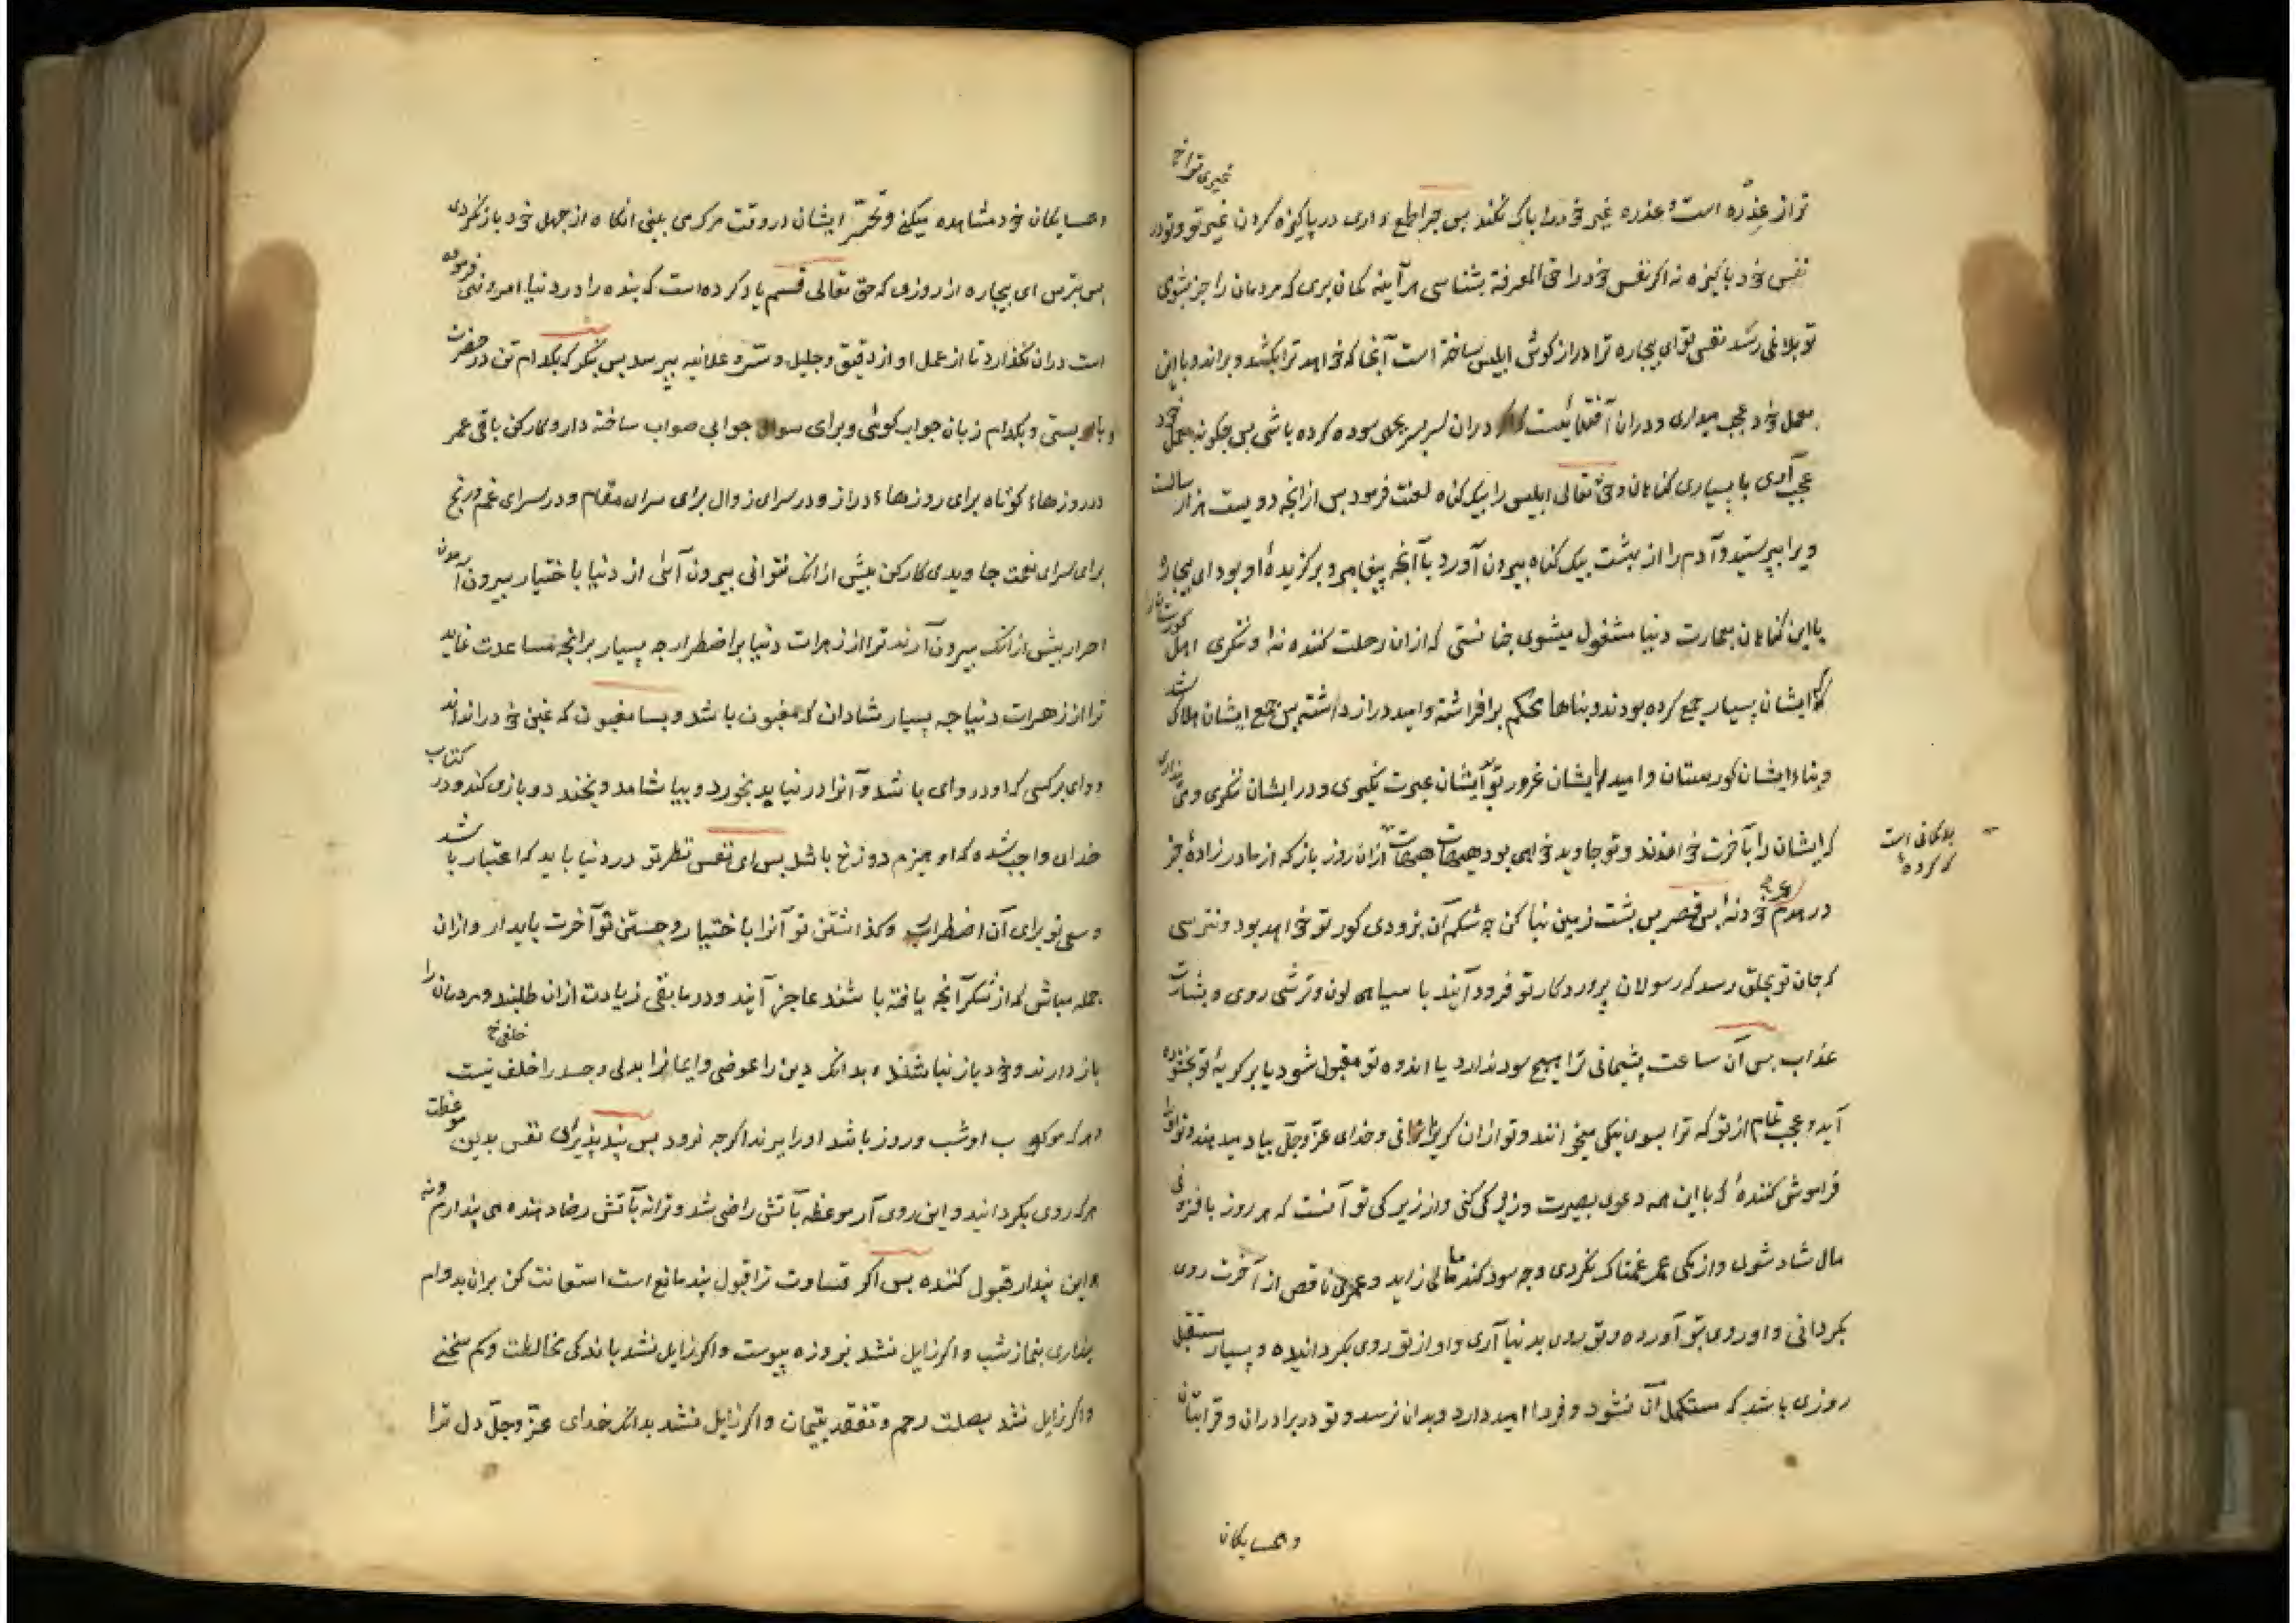 غیری ترا نخ
تر از عذره است و عذره غیر خود را پاک نکند بس چرا طمع داری در پاکیزه کردن غیر تو و تو در
نفس خود پاکیزه نه اکر نفس خود را حق المعرفة بشناسی هر آینه کمان بری که مردمان را جز بشومی
تو بلائی نرسد نفس تو ای بیچاره ترا دراز کوش ابلیس ساخته است آنجا که خواهد ترا بکشد و براند و با این
بعمل خود عجب میداری و دران آفتهائیست که اکر دران سربسر بجهی سوده کرده باشی بس چکونه بعمل خود
عجب آری با بسیاری کناهان و حق تعالی ابلیس را بیک کناه لعنت فرمود بس ازانچه دویست هزار سالت
ویرا بپرستید و آدم را از بهشت بیک کناه بیرون آورد با آنچه پیغامبر و برکزیدهٔ او بود ای بیچاره
با این کناهان بعمارت دنیا مشغول میشوی چنانستی که ازان رحلت کننده نهٔ و ننکری اهل کورستانرا
که ایشان بسیار جمع کرده بودند و بناها محکم برافراشته و امید دراز داشته بس جمع ایشان هلاک شد
و بناء ایشان کورستان و امیدهاء ایشان غرور تو بایشان عبرت نکیری و در ایشان ننکری و می پنداری
که ایشان را بآخرت خواندند و تو جاوید خواهی بود هیهات هیهات ازان روز باز که از مادر زادهٔ جز
بدکمانی است
که کردهٔ
در هدم عمر خود نهٔ بس قصر بس بشت زمین بنا کن چه شکم آن بزودی کور تو خواهد بود و نترسی
که جان تو بحلق رسد که رسولان پروردکار تو فرود آیند با سیاهی لون و ترشی روی و بشارت
عذاب بس آن ساعت پشیمانی ترا هیچ سود ندارد یا اندوه تو مقبول شود یا بر کریهٔ تو بخشوده
آید و عجب تمام از تو که ترا بسوی نیکی میخوانند و تو ازان کریزانی و خدای عزّ و جلّ بیاد میدهند و تو آنرا
فراموش کنندهٔ که با این همه دعوی بصیرت و زیرکی کنی و از زیرکی تو آنست که هر روز بافزونی
مال شاد شوی و از کمی عمر غمناک نکردی و چه سود کند مالی زاید و عمری ناقص از آخرت روی
بکردانی و او روی بتو آورده و تو روی بدنیا آری و او از تو روی بکردانیده و بسیار مستقبل
روزی باشد که مستکمل آن نشود و فردا امید دارد و بدان نرسد و تو در برادران و قرابتان
و همسایکان
و همسایکان خود مشاهده میکنی و تحسّر ایشان در وقت مرک می بینی انکاه از جهل خود باز نکردی
بس بترس ای بیچاره از روزی که حق تعالی قسم یاد کرده است که بنده را در دنیا امر و نهی فرموده
است دران نکذارد تا از عمل او از دقیق و جلیل و سرّ و علانیه بپرسد بس بنکر که بکدام تن در حضرت
وی بایستی و بکدام زبان جواب کوئی و برای سوال جوابی صواب ساخته دار و کار کن باقی عمر
در روزهاء کوتاه برای روزهاء دراز و در سرای زوال برای سرای مقام و در سرای غم و رنج
برای سرای نعمت جاویدی کار کن بیش ازانک نتوانی بیرون آئی از دنیا باختیار بیرون آمدن
احرار بیش ازانک بیرون آرند ترا از زهرات دنیا بر اضطرار چه بسیار برانچه مساعدت نماید
ترا از زهرات دنیا چه بسیار شادان که مغبون باشد و بسا مغبون که غبن خود را نداند
و وای بر کسی که او در وای باشد و آنرا درنیابد بخورد و بیاشامد و بخندد و بازی کند و در کتاب
خدای واجب شده که او هیزم دوزخ باشد بس ای نفس نظر تو در دنیا باید که اعتبار باشد
و سعی تو برای آن اضطراب و کذاشتن تو آنرا باختیار و جستن تو آخرت پایدار و ازان
جمله مباش که از شکر آنچه یافته باشند عاجز آیند و در مابقی زیادت ازان طلبند و مردمان را
باز دارند و خود باز نباشند و بدانک دین را عوضی و ایمانرا بدلی و جسد را خلف نیست
خلفی نخ
و هر که مرکب او شب و روز باشد او را ببرند اکرچه نرود بس پند پذیر ای نفس بدین موعظت
هر که روی بکردانید و این روی آر موعظه بآتش راضی شد و ترا نه بآتش رضا دهنده می پندارم و نه
این پندار قبول کننده بس اکر قساوت ترا قبول پند مانع است استعانت کن بران بدوام
بیداری بنماز شب و اکر زایل نشد بروزه پیوست و اکر زایل نشد باندکی مخالطت و کم سخنی
و اکر زایل نشد بصلت رحم و تفقد یتیمان و اکر زایل نشد بدانک خدای عزّ و جلّ دل ترا